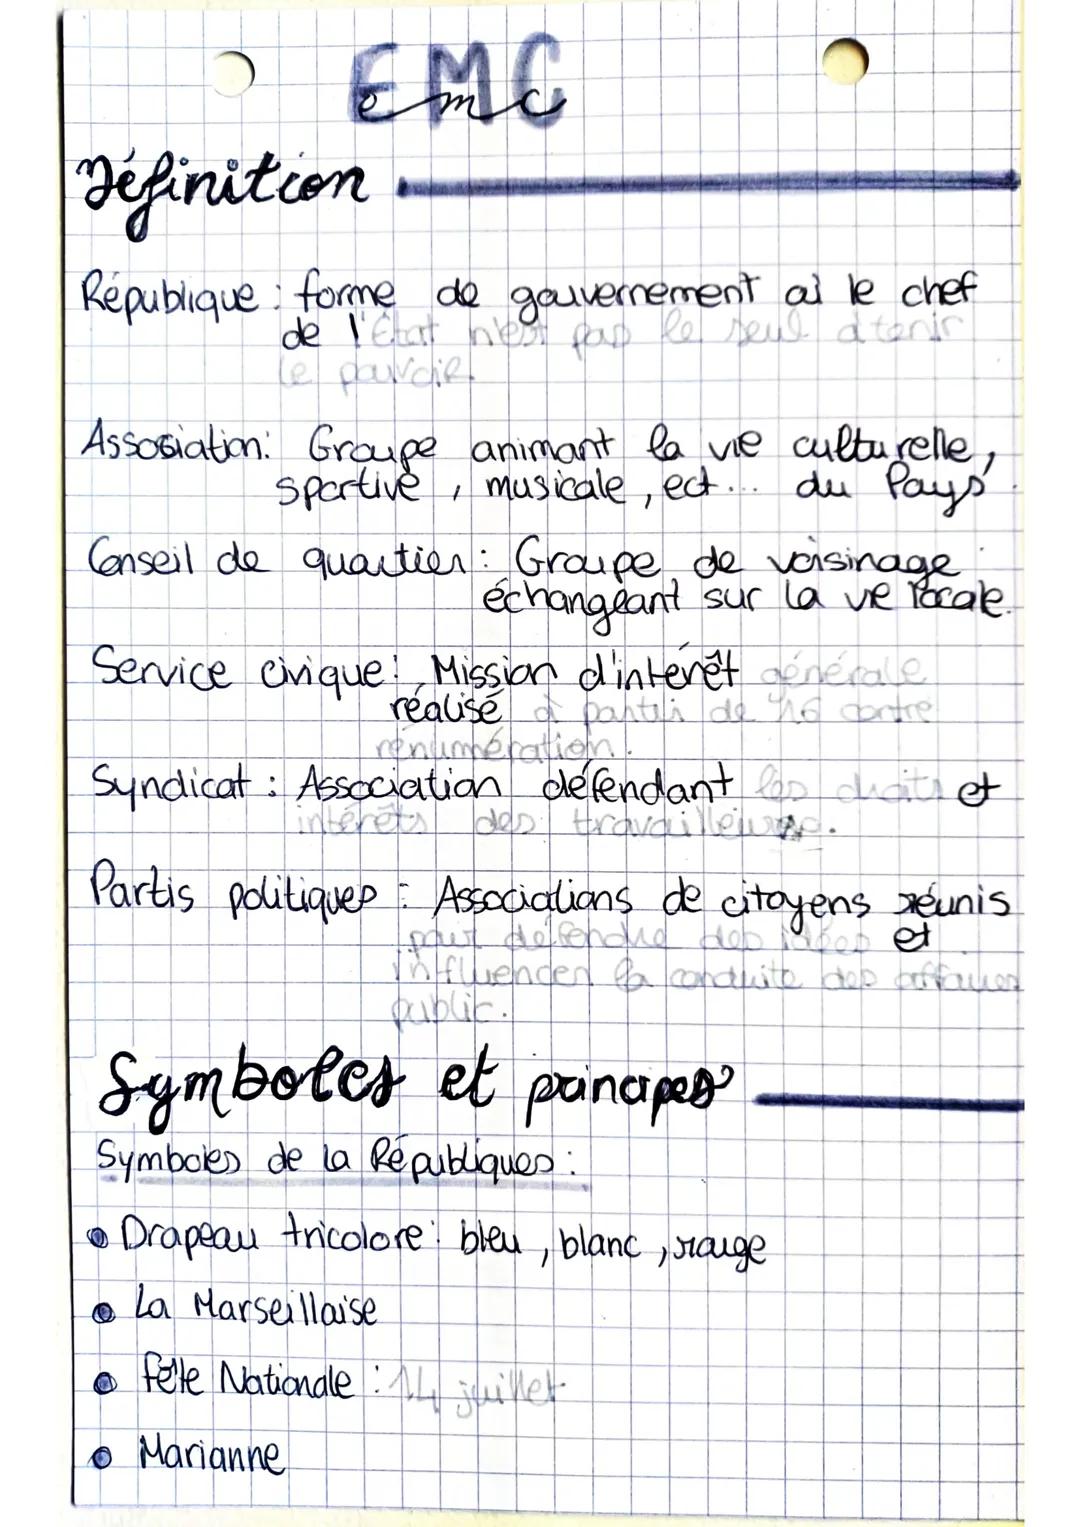 EMC
emc
Définition
République : forme de gouvernement où le chef
de l'État n'est pas le seul à tenir
le pouvoir.
Association : Groupe animant la vie culturelle,
sportive, musicale, ect... du Pays.
Conseil de quartier : Groupe de voisinage
échangeant sur la vie locale.
Service civique : Mission d'intérêt générale
réalisé à partir de 16 contre
rénumération.
Syndicat : Association défendant les droits et
intérêts des travailleurs.
Partis politiques : Associations de citoyens réunis
pour défendre des idées et
influencer la conduite des affaires
public.
Symboles et principes
Symboles de la Républiques :
Drapeau tricolore : bleu, blanc, rouge
La Marseillaise
fête Nationale : 14 juillet
Marianne